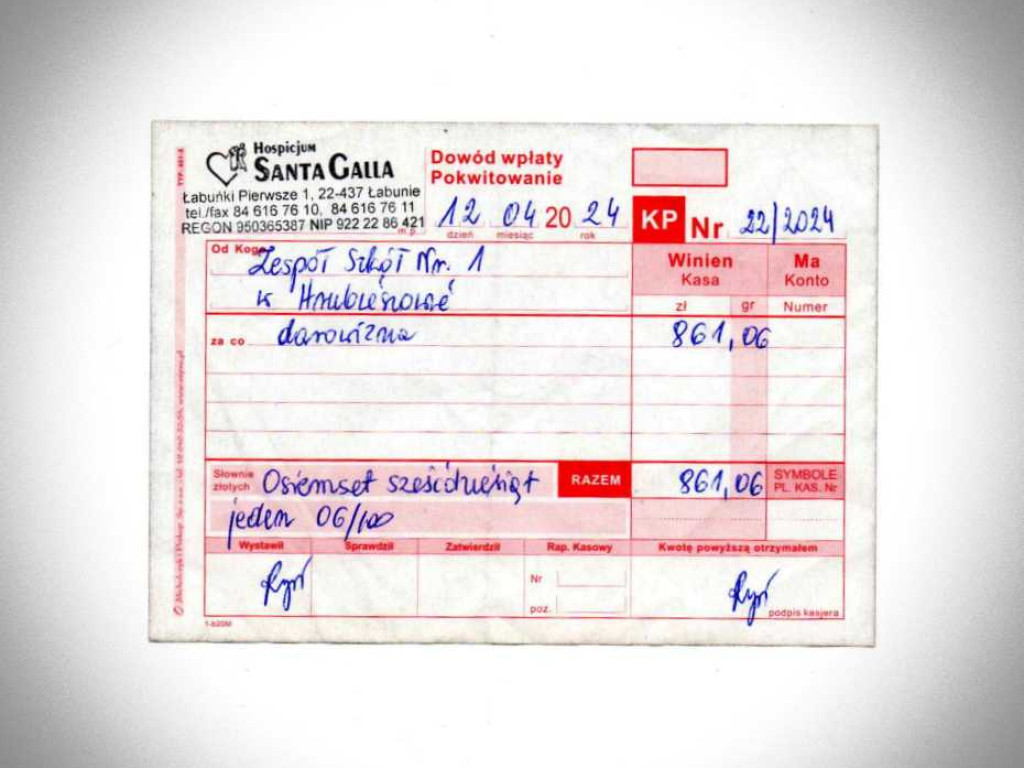 Hospicjum
SANTA GALLA
Łabuńki Pierwsze 1, 22-437 Łabunie
tel./fax 84 616 76 10, 84 616 76 11
REGON 950365387 NIP 922 22 86 421
m.p.
Dowód wpłaty
Pokwitowanie
12 04 20 24
dzień miesiąc rok
KP Nr 22/2024
Od Kogo Zespół Szkół Nr. 1
w Hrubieszowie
Winien
Kasa
Ma
Konto
zł gr Numer
za co darowizna 861,06
Słownie
złotych Osiemset sześćdziesiąt
jeden 06/100
RAZEM 861,06
SYMBOLE
PL. KAS. Nr
Wystawił Sprawdził Zatwierdził Rap. Kasowy Kwotę powyższą otrzymałem
Nr
poz.
podpis kasjera